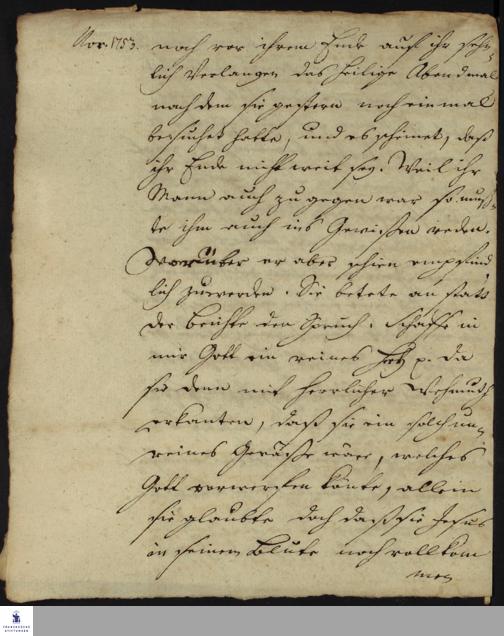 Nov. 1753. noch vor ihrem Ende auf ihr sehn-
lich Verlangen das heilige Abendmal
nach dem sie gestern noch einmal
besuchet hatte, und es scheinet, daß
ihr Ende nicht weit sey. Weil ihr
Mann auch zu gegen war so muß-
te ihm auch ins Gewißen reden.
Worüber er aber schien empfind
lich zuwerden. Sie betete an statt
der Beichte den Spruch: Schaffe in
mir Gott ein reines Hertz p. da
sie denn mit herrlicher Wehmuth
erkanten, daß sie ein solch un-
reines Gefäße wäre, welches
Gott verwerfen könte, allein
sie glaubte doch daß sie Jesus
in seinem Blute noch vollkom
men
FRANCKESCHE
STIFTUNGEN